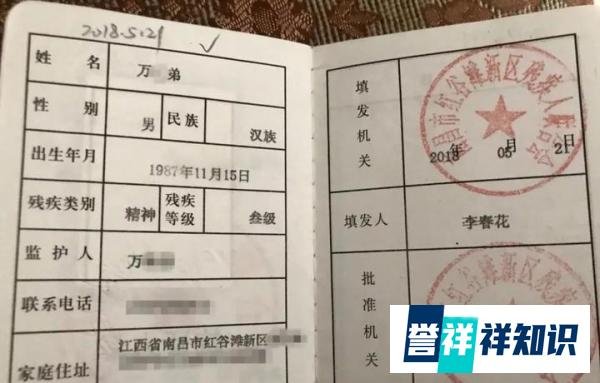 2018.5.21
姓名 万 弟
性别 男 民族 汉族
出生年月 1987年11月15日
残疾类别 精神 残疾等级 叁级
监护人 万
联系电话
家庭住址 江西省南昌市红谷滩新区
填发机关
南昌市红谷滩新区残疾人联合会
2018年05月21日
填发人 李春花
批准机关
红谷滩新区残疾
誉祥祥知识